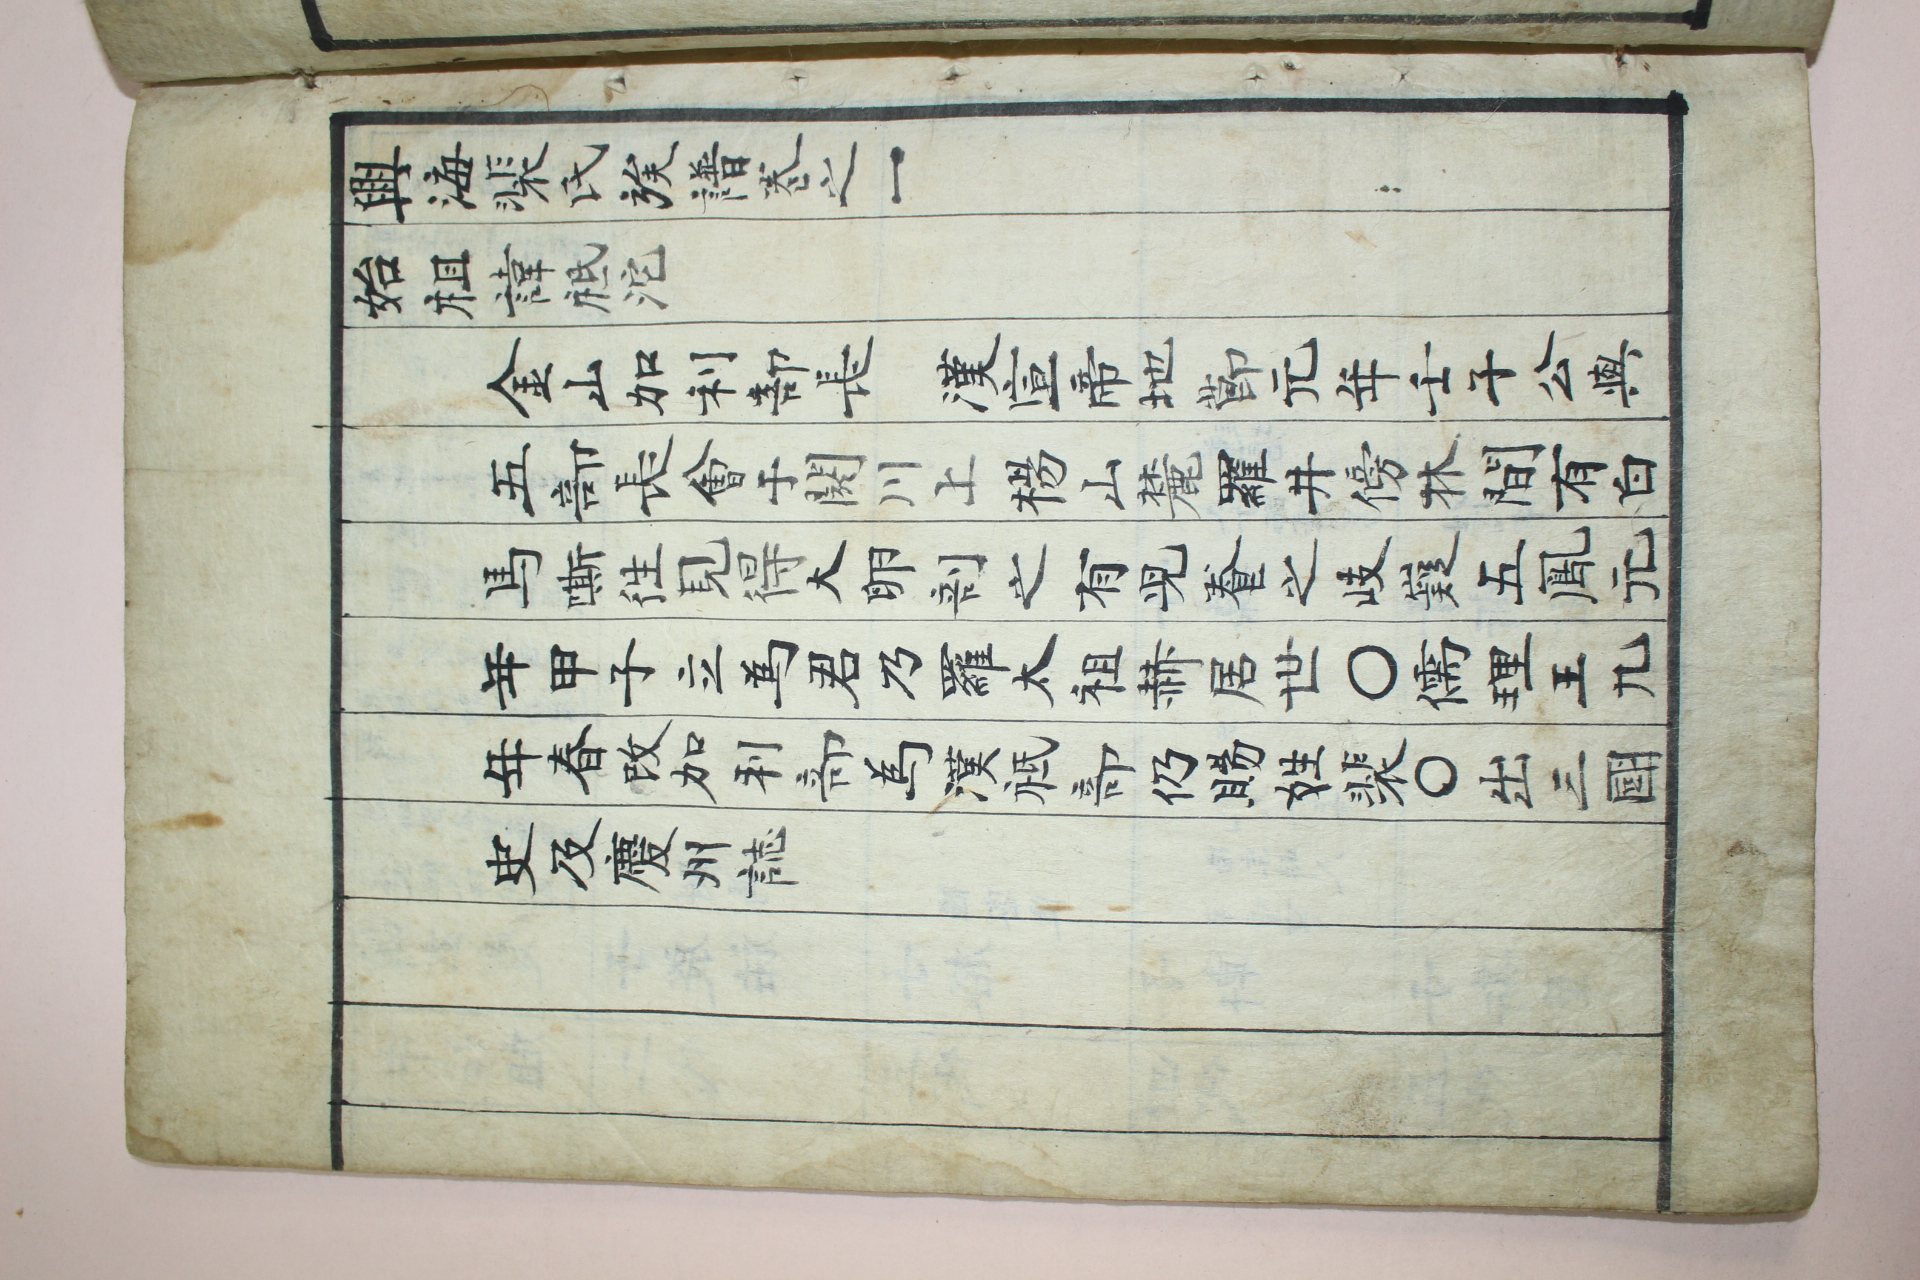 興海裴氏族譜卷之一
始祖諱祗沱
金山加利部長 漢宣帝地節元年壬子公與
五部長會于閼川上楊山麓羅井傍林間有白
馬嘶徃見得大卵剖之有児養之岐嶷五鳳元
年甲子立為君乃羅太祖赫居世〇儒理王九
年春改加利部為漢祗部仍賜姓裴〇出三國
史及慶州誌